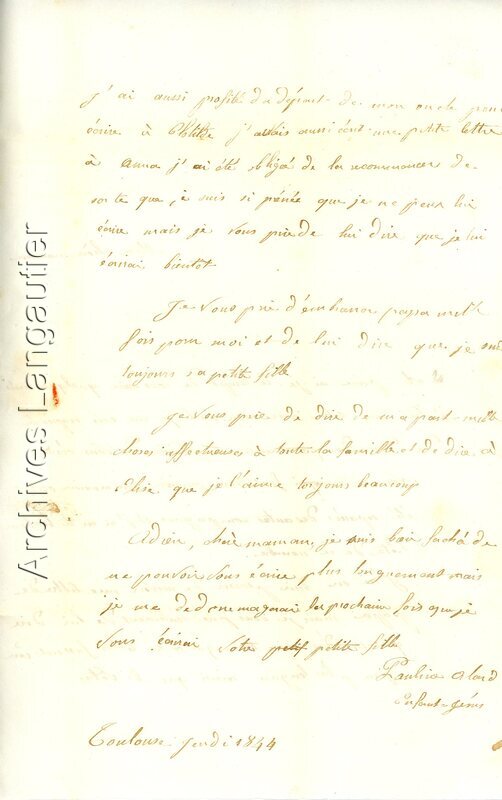 j'ai aussi profité du départ de mon oncle pour
écrire à j'avais aussi écrit une petite lettre
à Anna j'ai été obligé de la recommancer de
sorte que je suis si pressée que je ne peux lui
écrire mais je vous prie de lui dire que je lui
écrirai bientot
Je vous prie d'embrasser papa mille
fois pour moi et de lui dire que je suis
toujours sa petite fille
je vous prie de dire de ma part mille
choses affectueuses à toute la famille et de dire à
Elise que je l'aime toujours beaucoup
Adieu, chère maman, je suis bien faché de
ne pouvoir vous écrire plus longuement mais
je me dedonemagerai la prochaine fois que je
vous écrirai votre petit petite fille
Pauline Alard
Enfant Jésus
Toulouse jeudi 1844
Archives Langautier